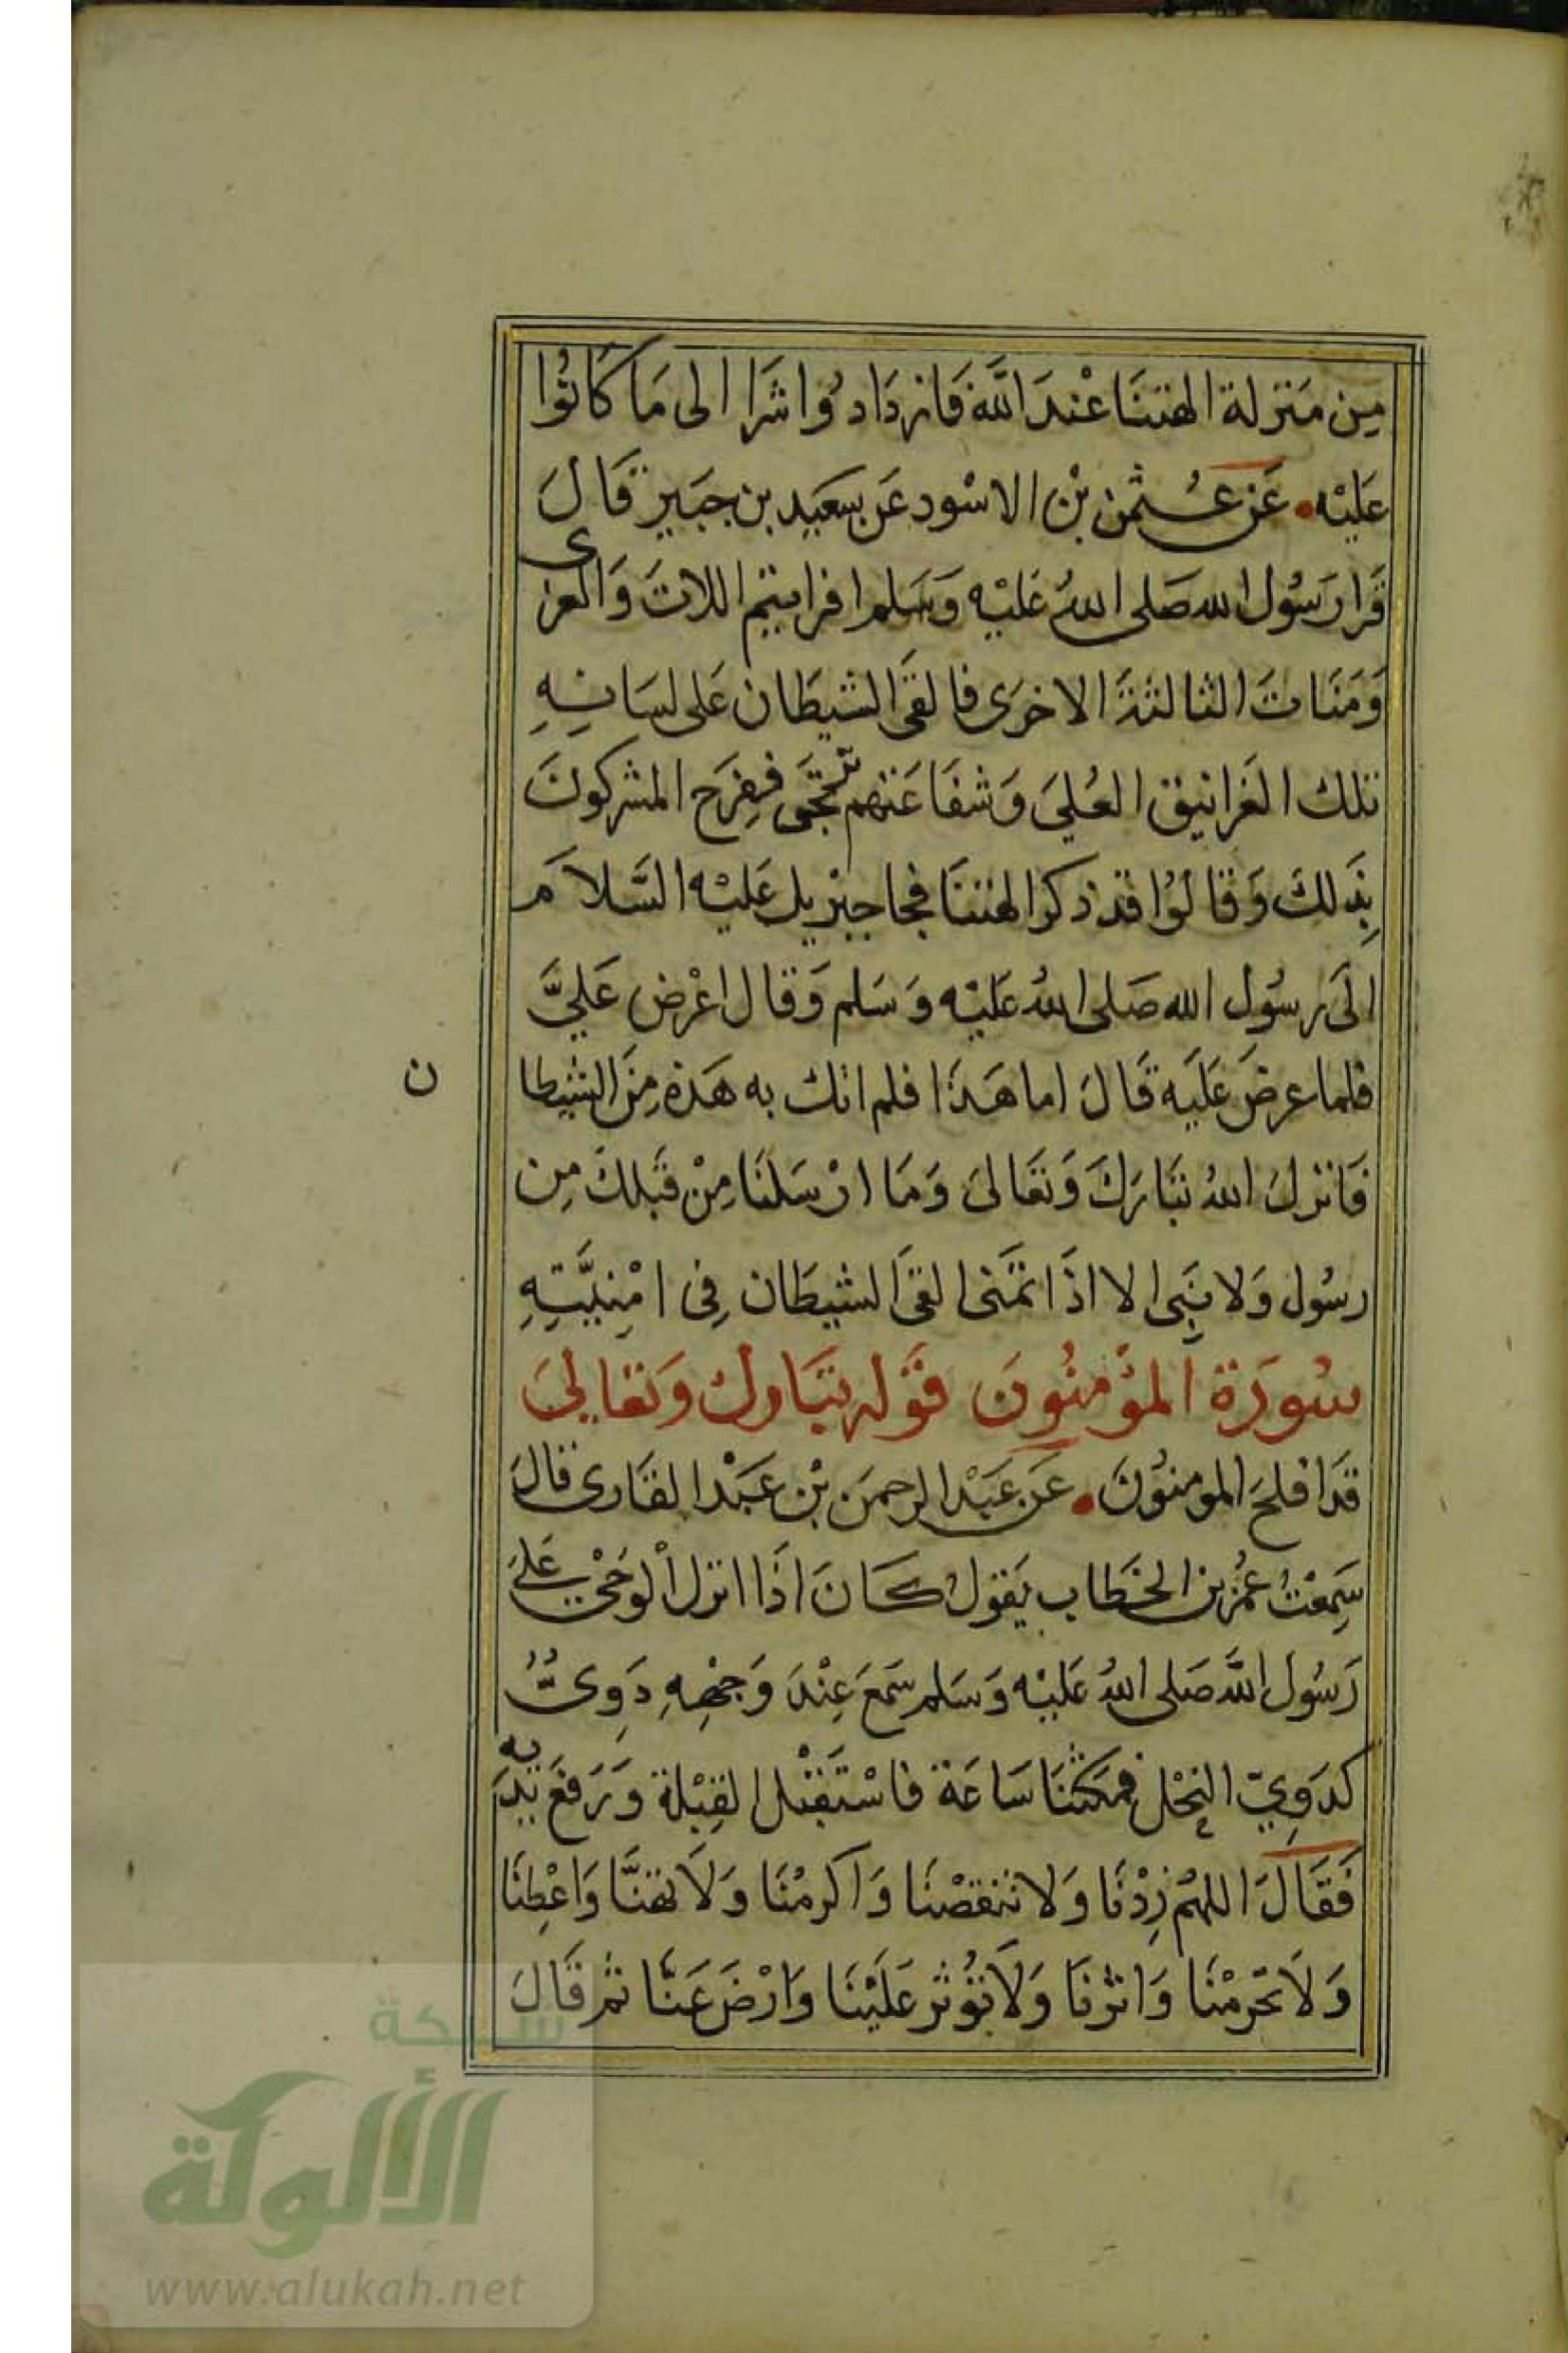 مِن مَنزلة الهتنَا عْندَ اللَّه فَازدَادوُا شَرا الى مَا كَانوُا
عَليْه عَن عُثمن بْن الاسْود عَن سعَيد بن جبَير قَالَ
قَرا رَسُول الله صَلى اللهُ عَليْه وَسَلم افرايتم اللاتَ وَالعزى
وَمَنَاتَ الثالثَةَ الاخرَى فالقىَ الشيطَان عَلى لسَانِهِ
تلك الغَرانيق العُلىَ وَشفَاعَتهم تُرتجَى ففِرَح المشركونَ
بِذَلكَ وَقالوُا قد ذكر الهتنَا فجا جبْريل عَليْه السَّلاَم
الىَ رسُول الله صَلى اللهُ عَليْه وَسَلم وَقال اعْرْض عَليَّ
فلما عرضَ عَليَه قَالَ اما هَذَا فلم اتك به هَذهِ مِنَ الشيطا
ن
فَانزلَ اللهُ تبَارَكَ وَتعَالىَ وَمَا ارْسَلنَا مِنْ قَبلكَ مِن
رسُول وَلا نَبِى الا اذَا تمَنى القىَ الشيطَان فِى امْنِيَّتِهِ
سُورَة المؤْمنُونَ قوْله تبَارك وَتعَالىَ
قدَ افلحَ المومنوُنَ عَن عَبْد الرحمَن بْن عَبْد القَارى قالَ
سَمِعْتُ عمُر بن الخطَاب يَقول كَانَ اذَا انزل الْوَحْيُ عَلىَ
رَسُول اللَّه صَلى اللهُ عَليْه وَسَلم سَمعَ عِنْدَ وَجْهِهِ دَوِىٌّ
كدَوِيّ النحْل فمكثنَا سَاعَة فاسْتَقْبَل القِبْلة وَرَفعَ يَدَيه
فَقَالَ اللهُم زِدْنَا وَلا تنقصْنا وَاكرمْنَا وَلاَ تهنَّا وَاعْطِنَا
وَلاَ تحَرمْنَا وَاثرنَا وَلاَ تؤُثر عَليْنَا وَارْضَ عَنَّا ثم قَالَ
شبكة
الألوكة
www.alukah.net